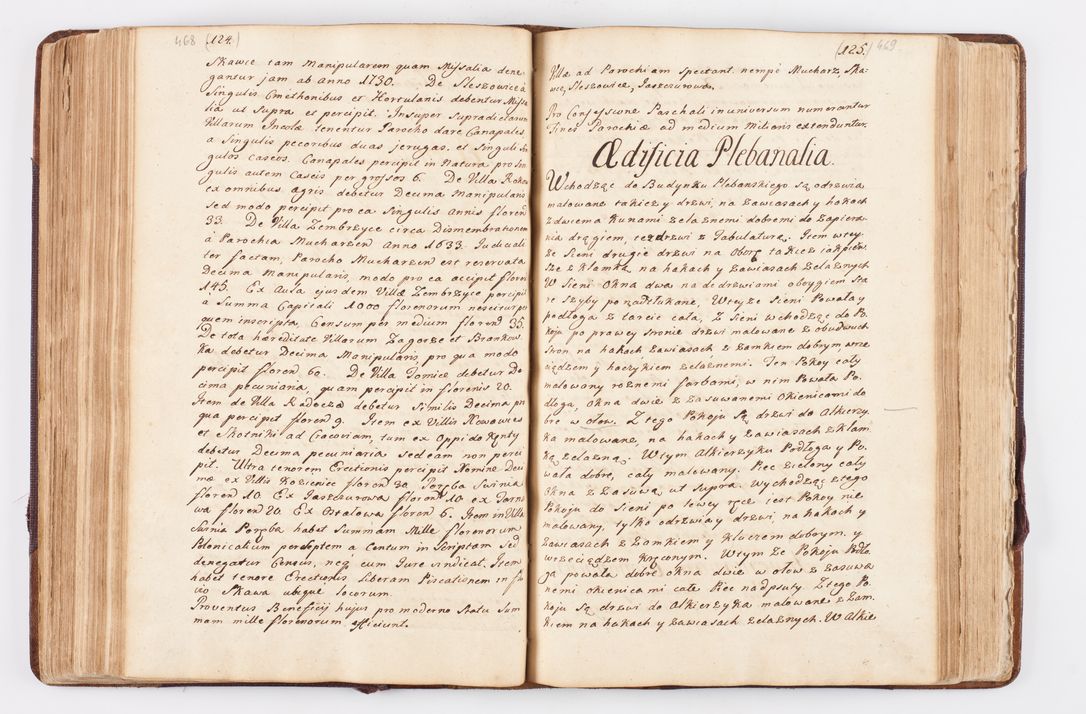 468 (124.)
Skawie tam Manipularem quam Missalia dene
gantur jam ab anno 1730. De Sleszowice à
Singulis Cmethonibus et Hortulanis debentur Missa
lia ut Supra et percipit. Insuper Supradictarum
Villarum Incolæ tenentur Parocho dare Canapales
a Singulis pecoribus duas jerugas, et Singuli Sin
gulos caseos. Canapales percipit in Natura pro Sin
gulis autem Caseis per grossos 6. De Villa Roków
ex omnibus agris debetur Decima Manipularis
sed modo percipit pro ea Singulis annis floren
33. De Villa Zembrzyce circa Dismembrationem
à Parochia Mucharzen Anno 1633. Judiciali
ter factam, Parocho Mucharzen est reservata
Decima Manipularis, modo pro ea accipit floren
145. Ex Aula ejusdem Villæ Zembrzyce percipit
a Summa Capitali 1000 florenorum nescitur per
quem inscripta, Censum per medium floren 35.
De tota hæreditate Villarum Zagorze et Brankow
ka debetur Decima Manipularis, pro qua modo
percipit floren 60. De Villa Tomice debetur De
cima pecuniaria, quam percipit in florenis 20.
Item de Villa Radocza debetur Similis Decima pro
qua percipit floren 9. Item ex Villis Kossowice
et Skotniki ad Cracoviam, tum ex Oppido Kęnty
debetur Decima pecuniaria sed eam non perci
pit. Ultra tenorem Erectionis percipit Nomine Deci
mæ ex Villis Kozieniec floren 30 Poręba Swinia
floren 10. Ex Jaszczurowa floren 10 ex Tarna
wa floren 20. Ex Ostalowa floren 6. Item in Villa
Swinia Poręba habet Summam Mille florenorum
Polonicalium per septem a Centum inscriptam sed
denegatur Census, neq eum Jure vindicat. Item
habet tenore Erectionis liberam Piscationem in flu
vio Skawa ubiqué locorum.
Proventus Beneficij hujus pro moderno Statu Sum
mam mille florenorum efficiunt.
(125.) 469
Villæ ad Parochiam Spectant. nempé Mucharz, Ska
wce, Sleszowice, Jaszczurowa.
Pro Confessione Paschali in universum numerantur
Fines Parochiæ ad medium Miliaris extenduntur.
Ædificia Plebanalia.
Wchodząc do Budynku Plebanskiego są odrzwia
malowane takież y drzwi, na zawiasach y hakach
z dwiema Kunami zelaznemi dobremi do zapiera
nia drągiem, tez drzwi z Tabulaturą. Item w tey
ze Sieni drugie drzwi na Oborę takiez iak piérw
sze z Klamką na hakach y zawiasach zelaznych
W Sieni Okna dwa nadedrzwiami obóygiem Sta
re Szyby ponadtłukane, Wteyze Sieni Powała y
podłoga z tarcic cała, Z Sieni wchodząc do Po
koju po prawey stronie drzwi malowane z obudwuch
Stron na hakach zawiasach z zamkiem dobrym, wrze
ciądzem y hoczykiem zelaznemi. Ten Pokoy cały
malowany roznemi farbami, w nim Powała Po
dłoga, Okna dwie z zasuwanemi Okienicami do
bre w ołow. Z tego Pokoju są drzwi do Alkierzy
ka malowane, na hakach y zawiasach z Klam
ką zelazną. W tym Alkierzyku Podłoga y Po
wała dobre, cały malowany. Piec zielony cały
Okna z Zasuwą ut Supra. Wychodząc z tego
Pokoju do Sieni po lewey ręce iest Pokoy nie
malowany, tylko odrzwia y drzwi, na hakach y
zawiasach z zamkiem y kluczem dobrym, y
wrzeciądzem Kręconym. W tym ze Pokoju Podło
ga powała dobre okna dwie w ołow z zasuwa
nemi okienicami całe Piec nadpsuty. Z tego Po
koju są drzwi do Alkierzyka malowane z zam
kiem na hakach y zawiasach zelaznych. W Alkie